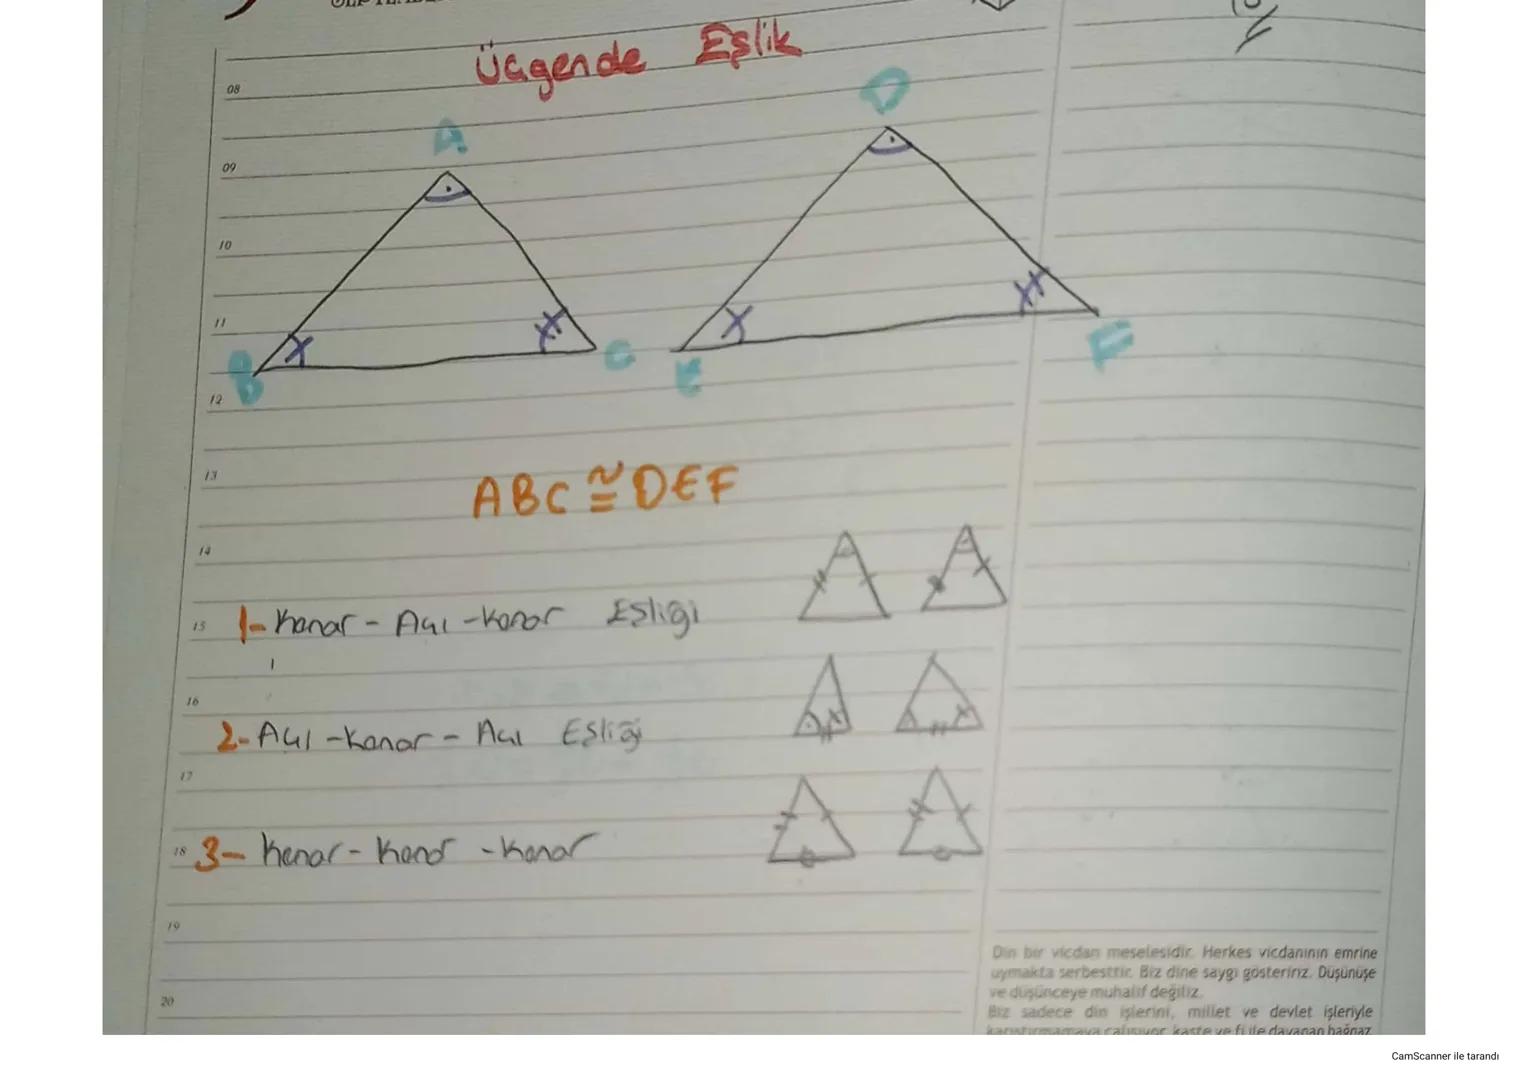 Üçgende Eşlik
08
A
D
09
10
11
B
C
E
F
12
13
ABC ≅ DEF
14
15
1- Kenar - Açı - Kenar Eşliği
16
2- Açı - Kenar - Açı Eşliği
17
18
3- Kenar - Kenar - Kenar
19
20
Din bir vicdan meselesidir. Herkes vicdanının emrine
uymakta serbesttir. Biz dine saygı gösteririz. Düşünüşe
ve düşünceye muhalif değiliz.
Biz sadece din işlerini, millet ve devlet işleriyle
karıştırmamaya çalışıyor, kaste ve fiile dayanan bağnaz
CamScanner ile tarandı